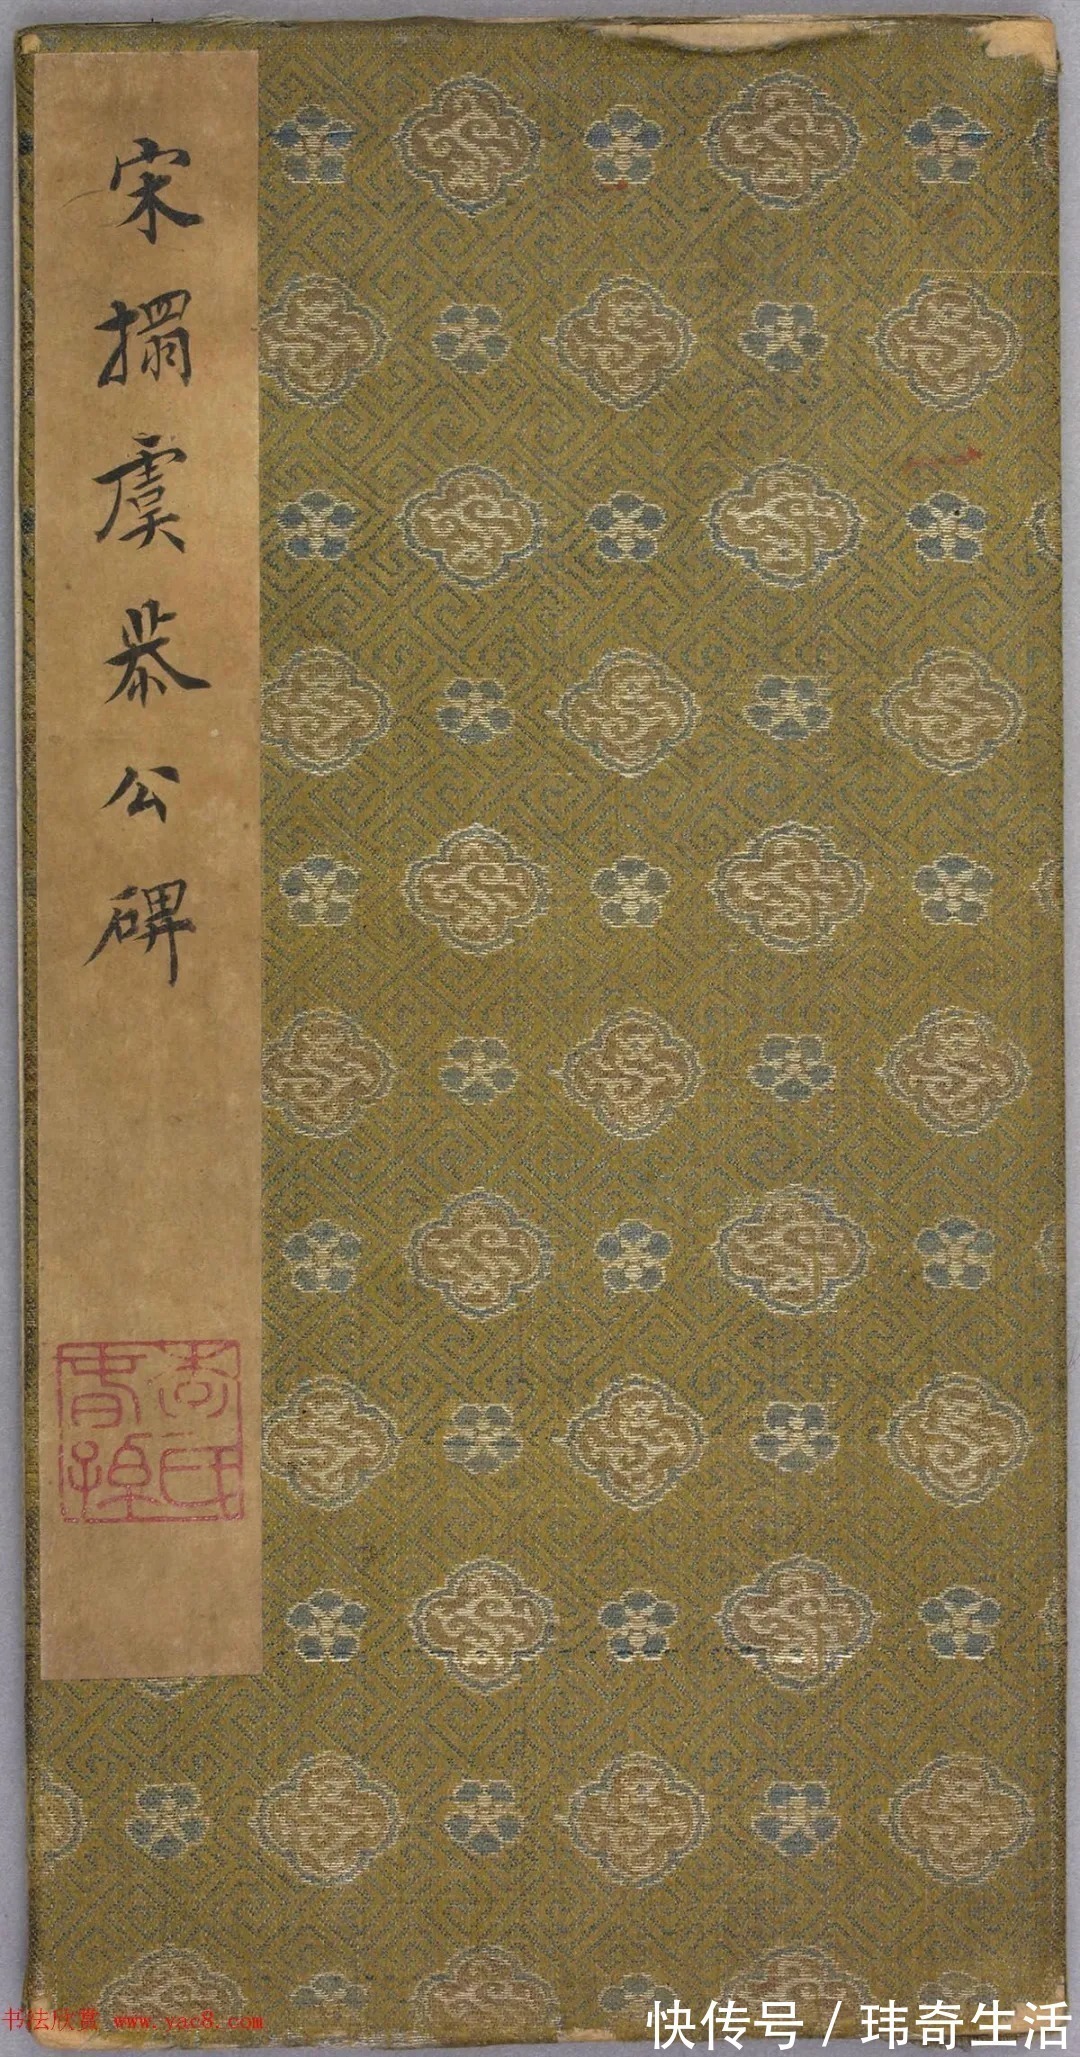 宋搨虞恭公碑
周氏
书法欣赏 www.yac8.com
快传号 / 玮奇生活